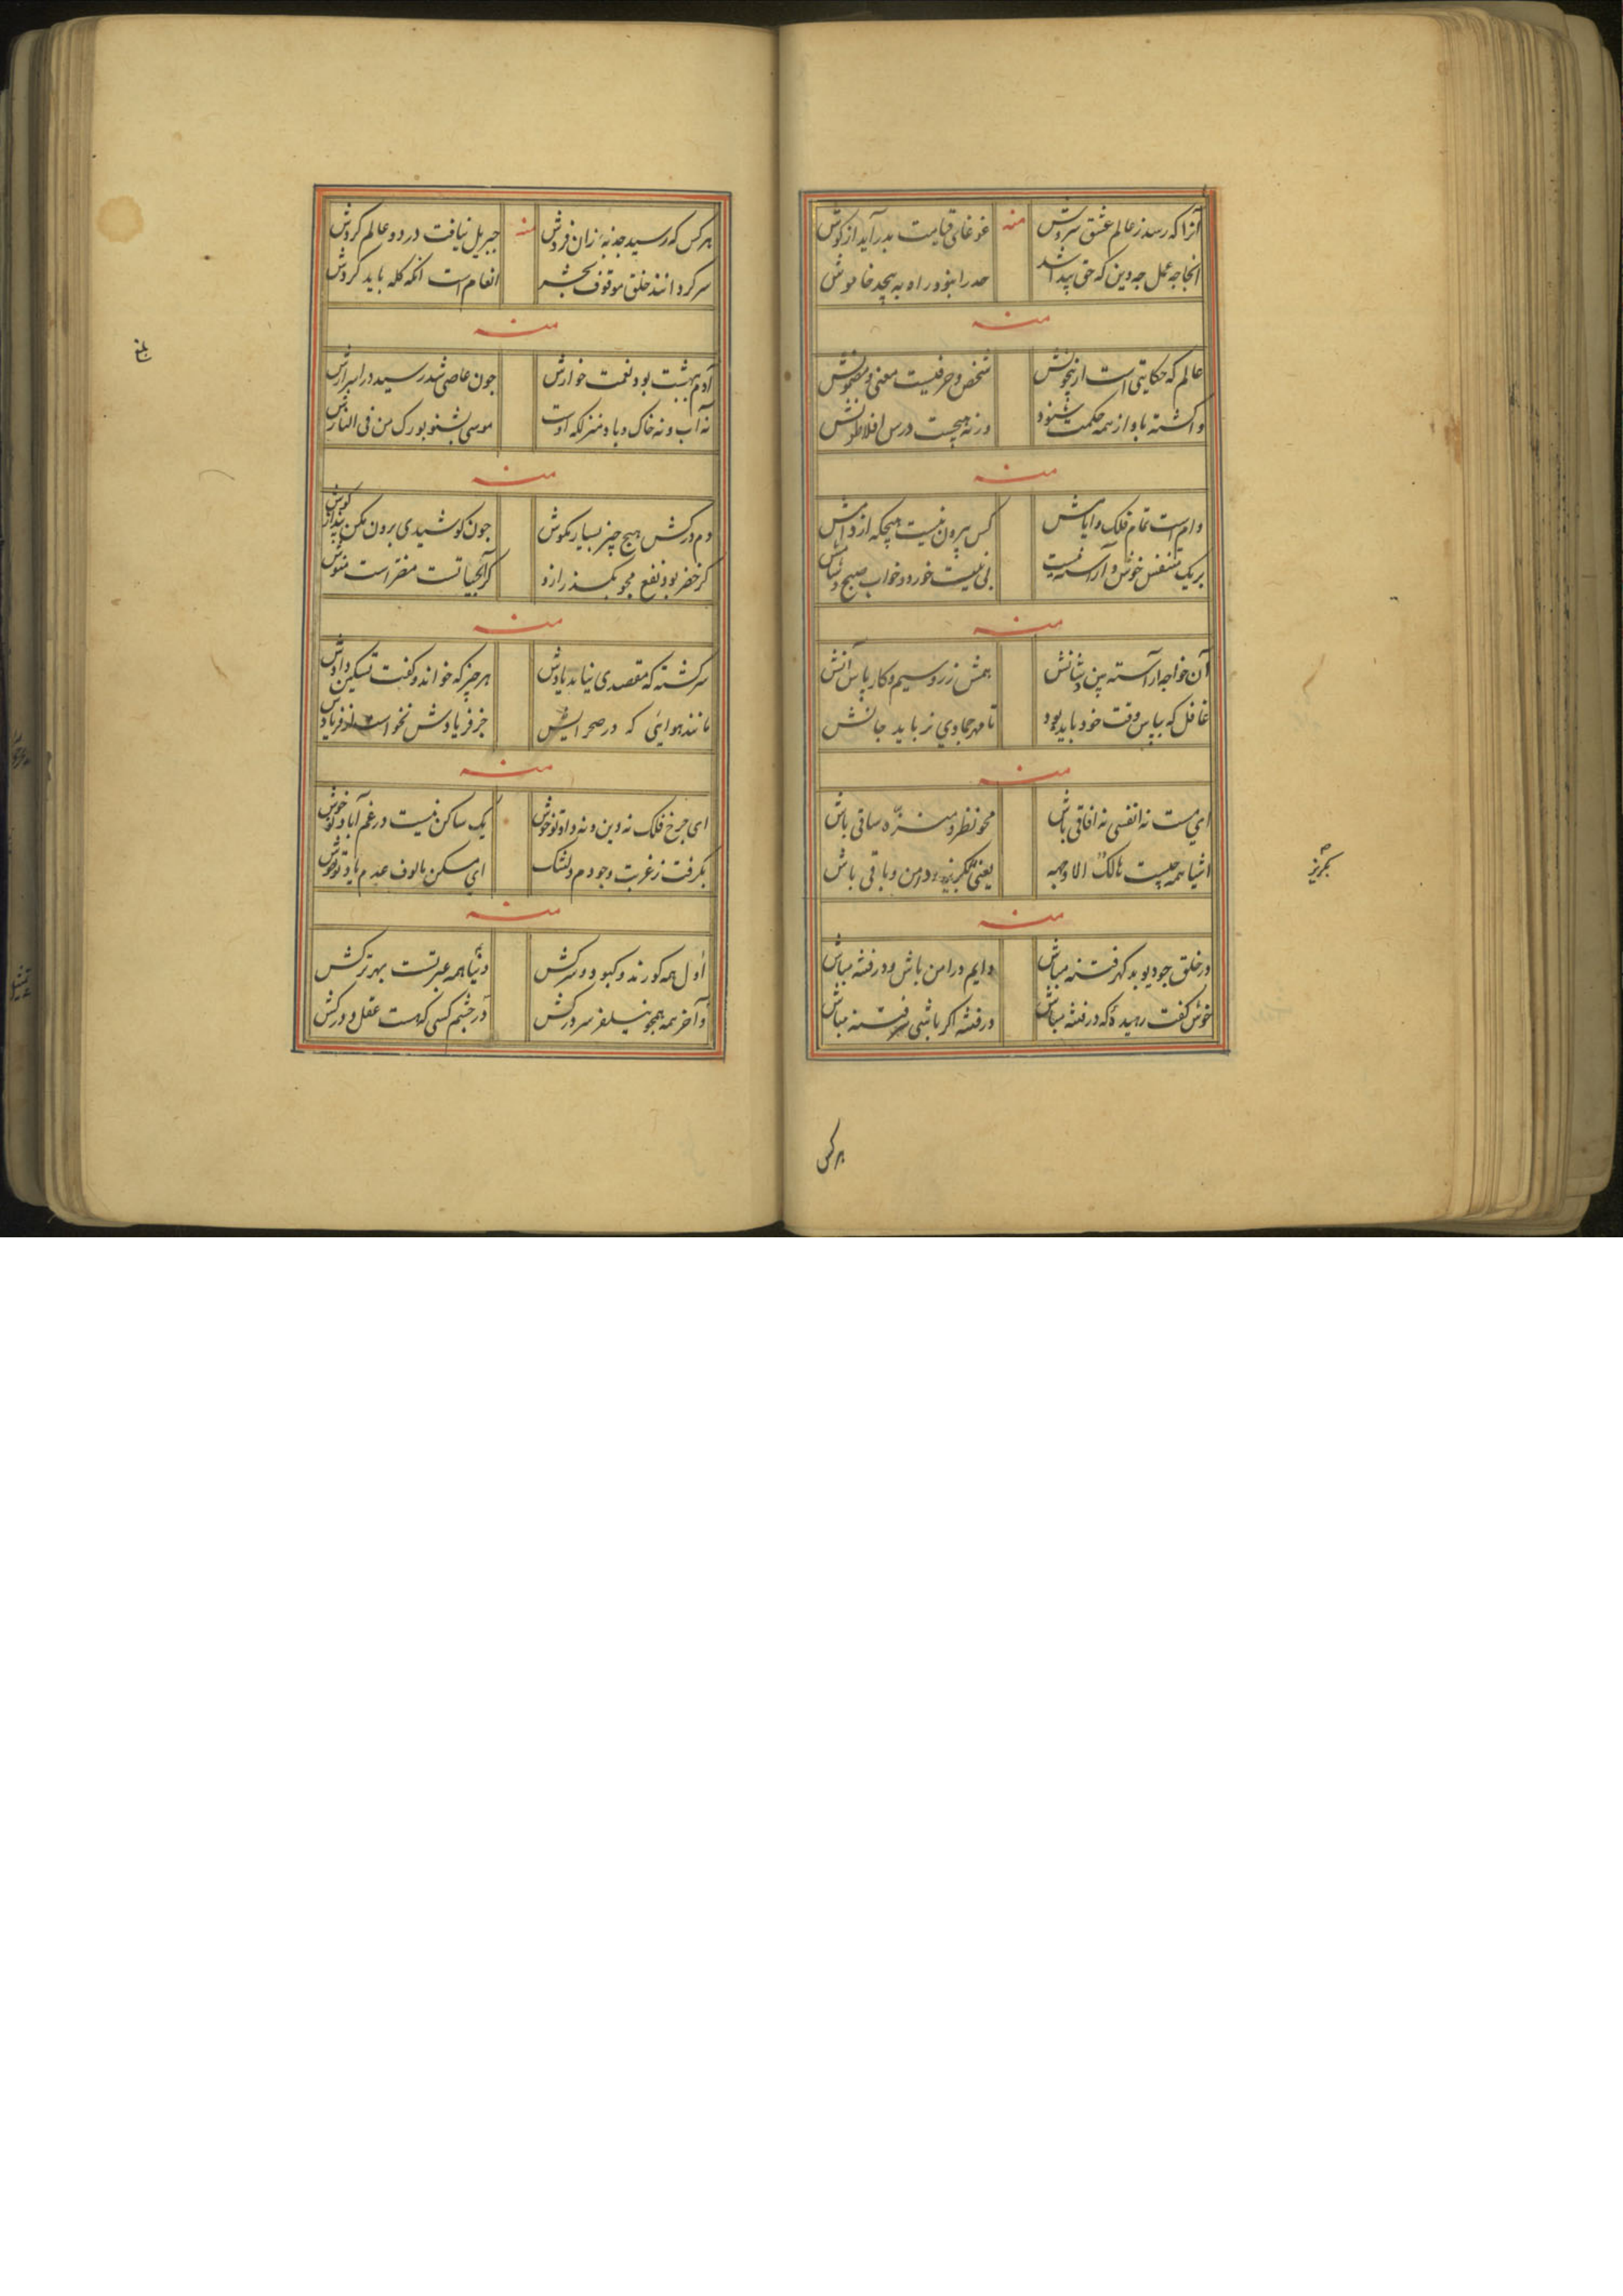 آنرا که رسد ز عالم عشق سروش
منه
غوغای قیامت بدر آید از کوش
انجا چه عمل چه دین که حق پیدا شد
خاموش
منه
عالم که حکایتی است از بیچونش
شخص و حرفیست معنی و مضمونش
واکشته باو از همه حکمت شنود
ورنه هیچست درس افلاطونش
منه
وام است تمام فلک و ایامش
کس بیرون نیست هیچکه از دامش
بر یک نفس خوش و آراسته نیست
بی نیست خورد و خواب صبح و شامش
منه
آن خواجه آراسته بین و شانش
همش زر و سیم و کار پاس آنش
غافل که بپاس وقت خود باید بود
تا مهر جمادی نرباید جانش
منه
ای مست نه انفسی نه افاقی باش
محو نظر و منزه ساقی باش
اشیا همه چیست هالک الا وجهه
یعنی بگریز در من و باقی باش
منه
در خلق چو دیو بد کهر فتنه مباش
دایم در امن باش و در فتنه مباش
خوش گفت رهیده که در فتنه مباش
در فتنه اکر باشی سر فتنه مباش
بگریز
هر کس
هر کس که رسید جذبه زان فردش
منه
جبریل نیافت در دو عالم کردش
سرکردانند خلق موقوف بحشر
انعام است انکه کله باید کردش
منه
آدم به بهشت بود نعمت خوارش
چون عاصی شد رسید در اسرارش
نه آب و نه خاک و باد منزلکه اوست
موسی بشنو بورک من فی النارش
منه
دم درکش هیچ چیز بسیار مکوش
چون کوشیدی برون مکن پنبه ز کوش
کر خضر بود نفع مجو بکذر ازو
کر آبحیاتست مضر است منوش
منه
سرکشته که مقصدی نیاید یادش
هر چیز که خواند و گفت تسکین دادش
مانند هوایی که در صحراییش
جز فریادش نخواست از فریادش
منه
ای چرخ فلک نه دین و نه داد تو خوش
یک ساکن نیست در غم آباد تو خوش
بکرفت ز غربت وجودم دلتنک
ای مسکن مالوف عدم یاد تو خوش
منه
اول همه کورند و کبود و سرکش
دنیا همه عبرتست بهتر ترکش
و آخر همه همچو نیلفر سر درکش
در چشم کسی که هست عقل و درکش